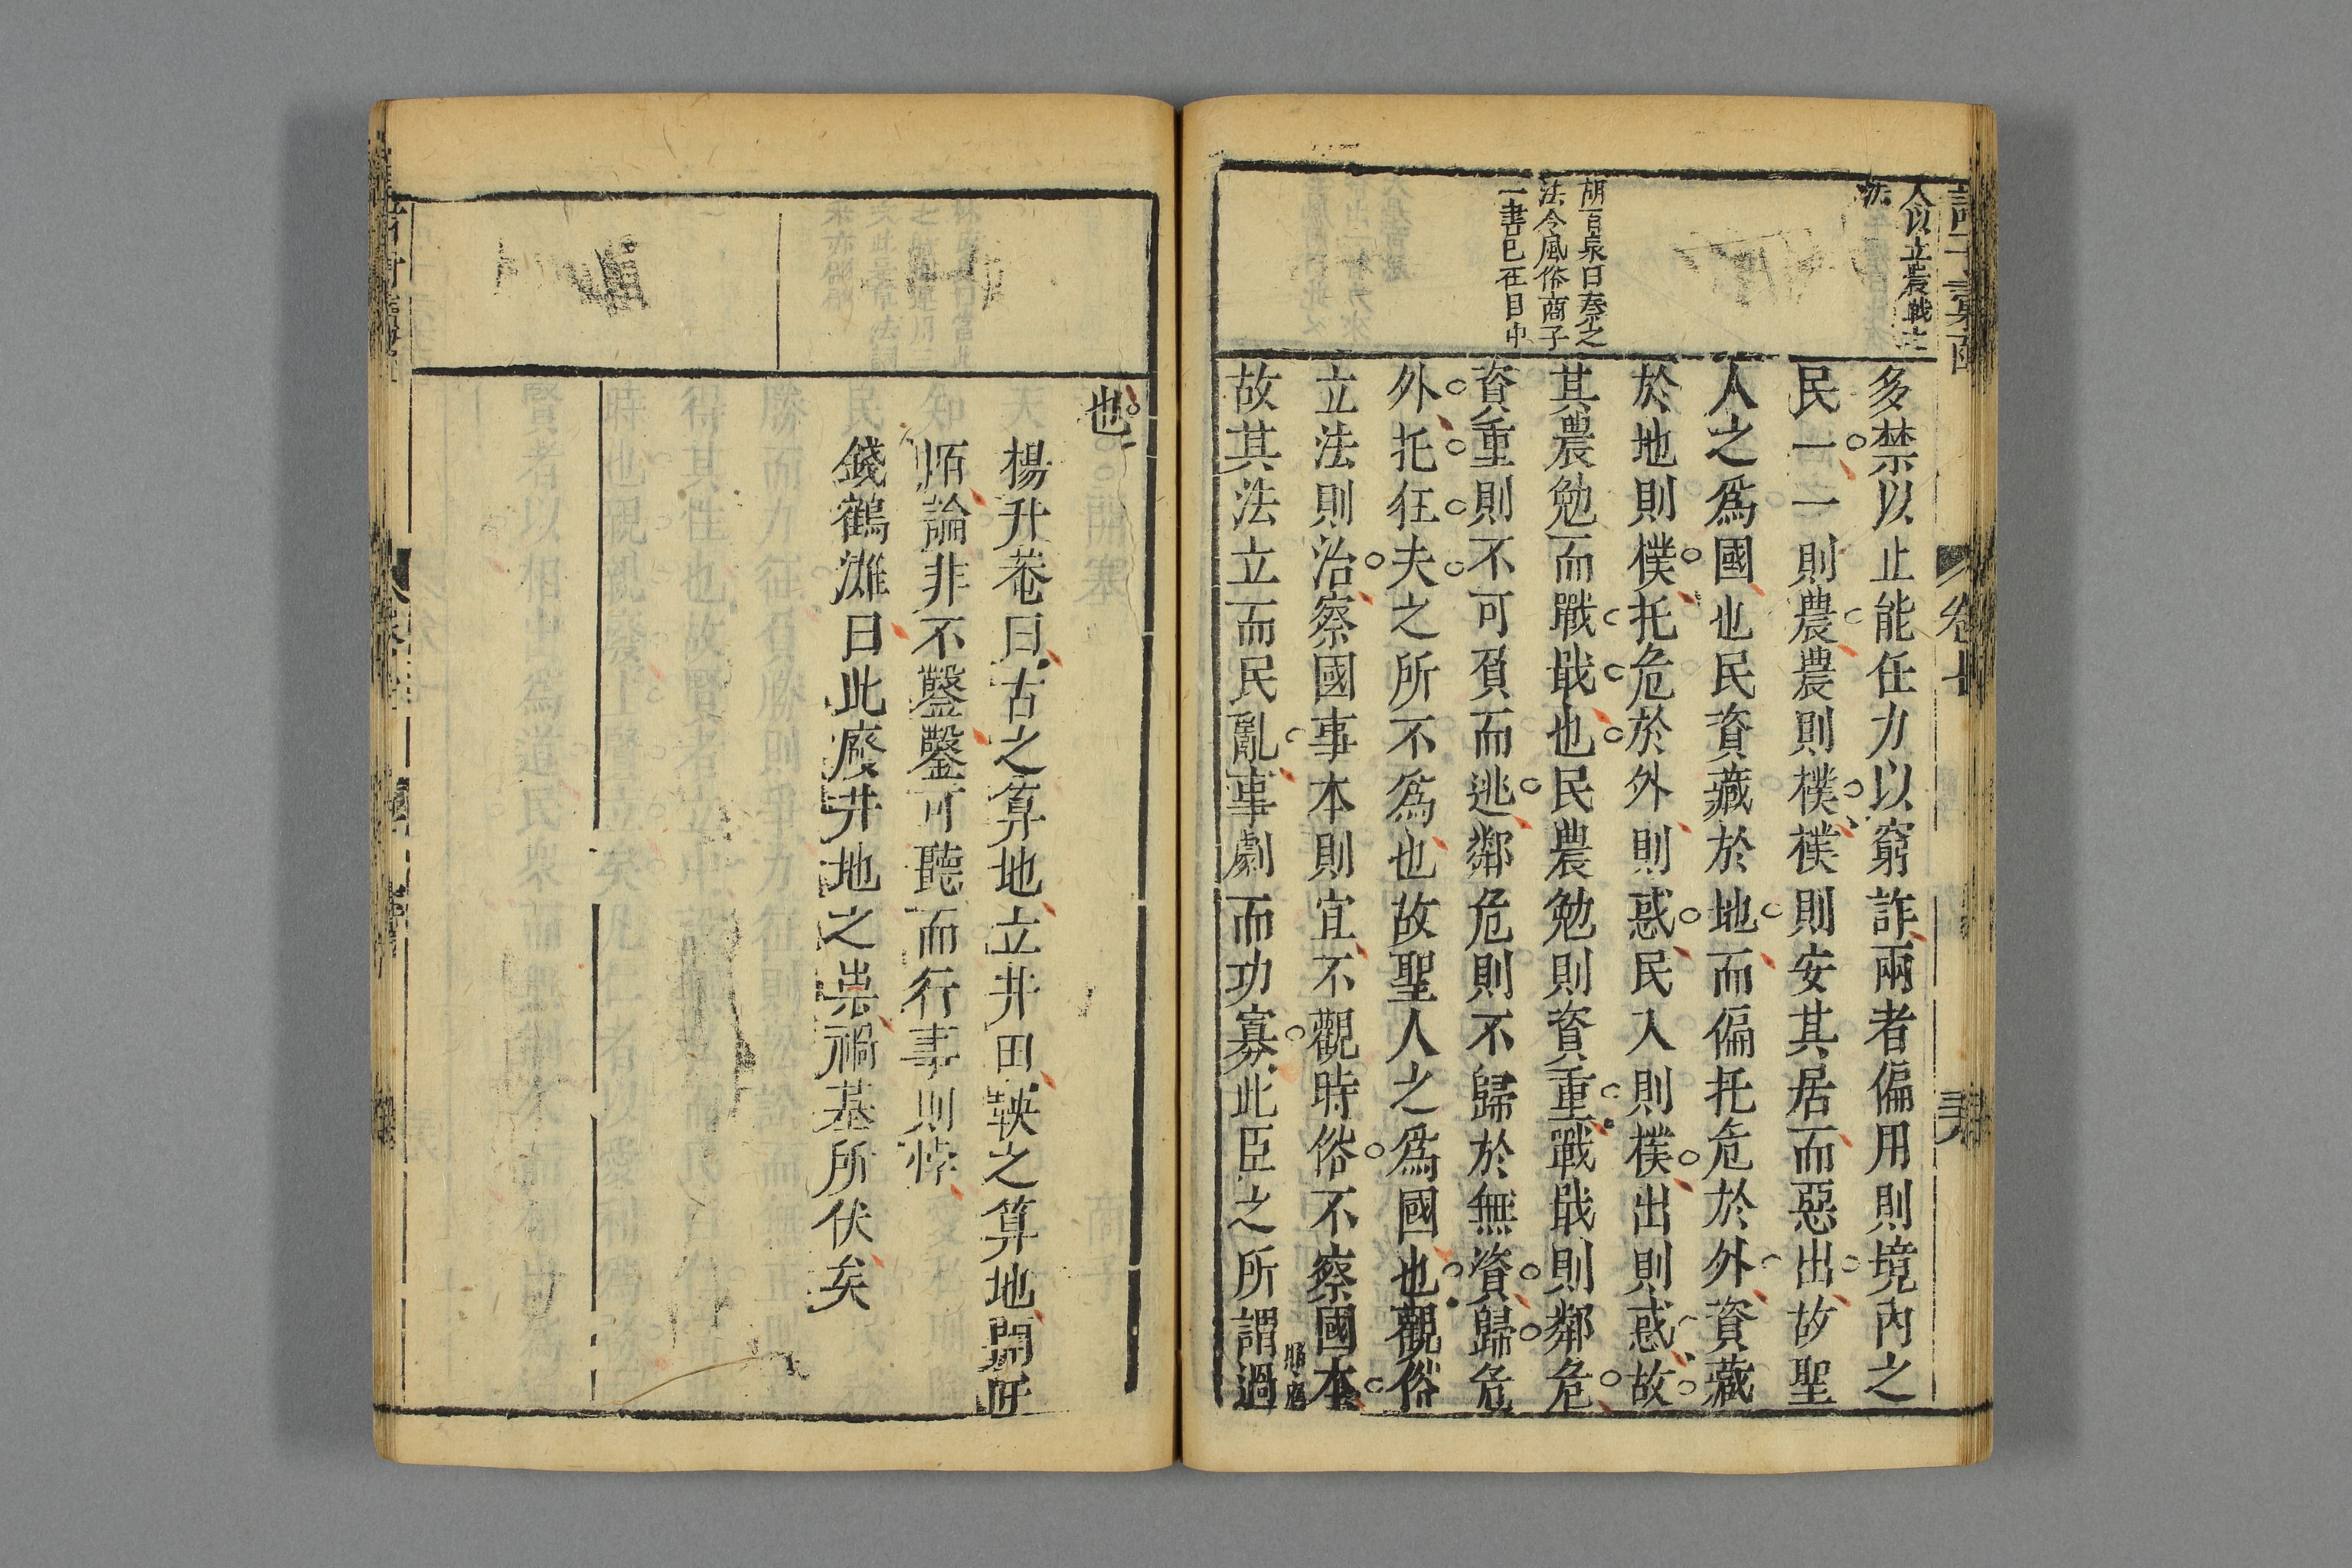 人以立農戰之
法
胡百泉曰秦之
法令風俗商子
一書已在目中
多禁以止能任力以窮詐兩者偏用則境內之
民一一則農農則樸樸則安其居而惡出故聖
人之爲國也民資藏於地而偏托危於外資藏
於地則樸托危於外則惑民入則樸出則惑故
其農勉而戰戢也民農勉則資重戰戢則鄰危
資重則不可負而逃鄰危則不歸於無資歸危
外托狂夫之所不爲也故聖人之爲國也觀俗
立法則治察國事本則宜不觀時俗不察國本
故其法立而民亂事劇而功寡此臣之所謂過
也
楊升菴曰古之算地立井田鞅之算地開阡
陌論非不鑿鑿可聽而行事則悖
錢鶴灘曰此廢井地之祟禍基所伏矣
卷十